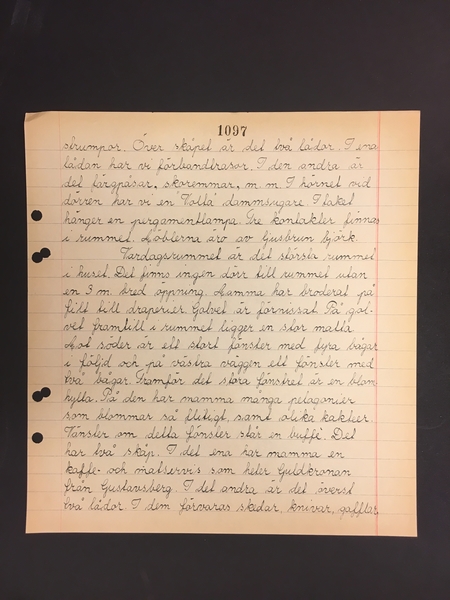 1097
strumpor. Över skåpet är det två lådor. I ena
lådan har vi förbandtrasor. I den andra är
det färgpåsar, skoremmar, m. m. I hörnet vid
dörren har vi en "Volta" dammsugare I taket
hänger en pergamentlampa. Tre kontakter finnas
i rummet. Möblerna äro av ljusbrun björk.
Vardagsrummet är det största rummet
i huset. Det finns ingen dörr till rummet utan
en 3 m. bred öppning. Mamma har broderat på
filt till draperier. Golvet är förnissat. På gol-
vet framtill i rummet ligger en stor matta
Mot söder är ett stort fönster med fyra bågar
i följd och på västra väggen ett fönster med
två bågar. Framför det stora fönstret är en blom
hylla. På den har mamma många pelagonier
som blommar så flitigt, samt olika kakteer.
Vänster om detta fönster står en buffé. Det
har två skåp. I det ena har mamma en
kaffe- och matservis som heter Guldkronan
från Gustavsberg. I det andra är det överst
två lådor. I dem förvaras skedar, knivar, gafflar,